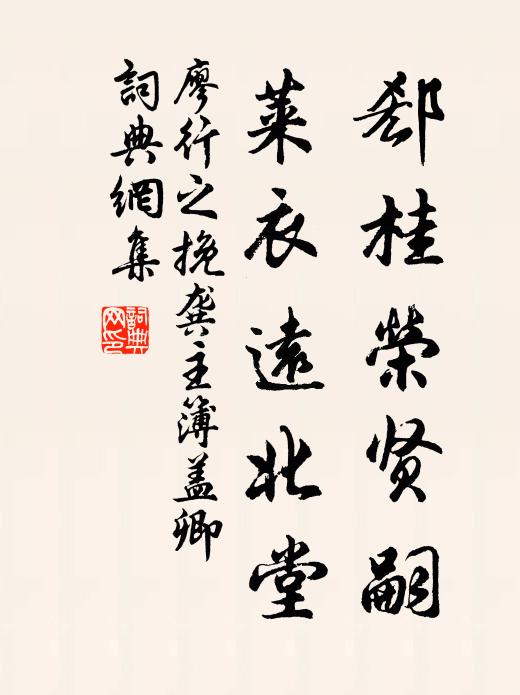 郄桂榮贤嗣
莱衣遠北堂
廖行之挽龚主簿盖卿
詞典網集
詞典网印